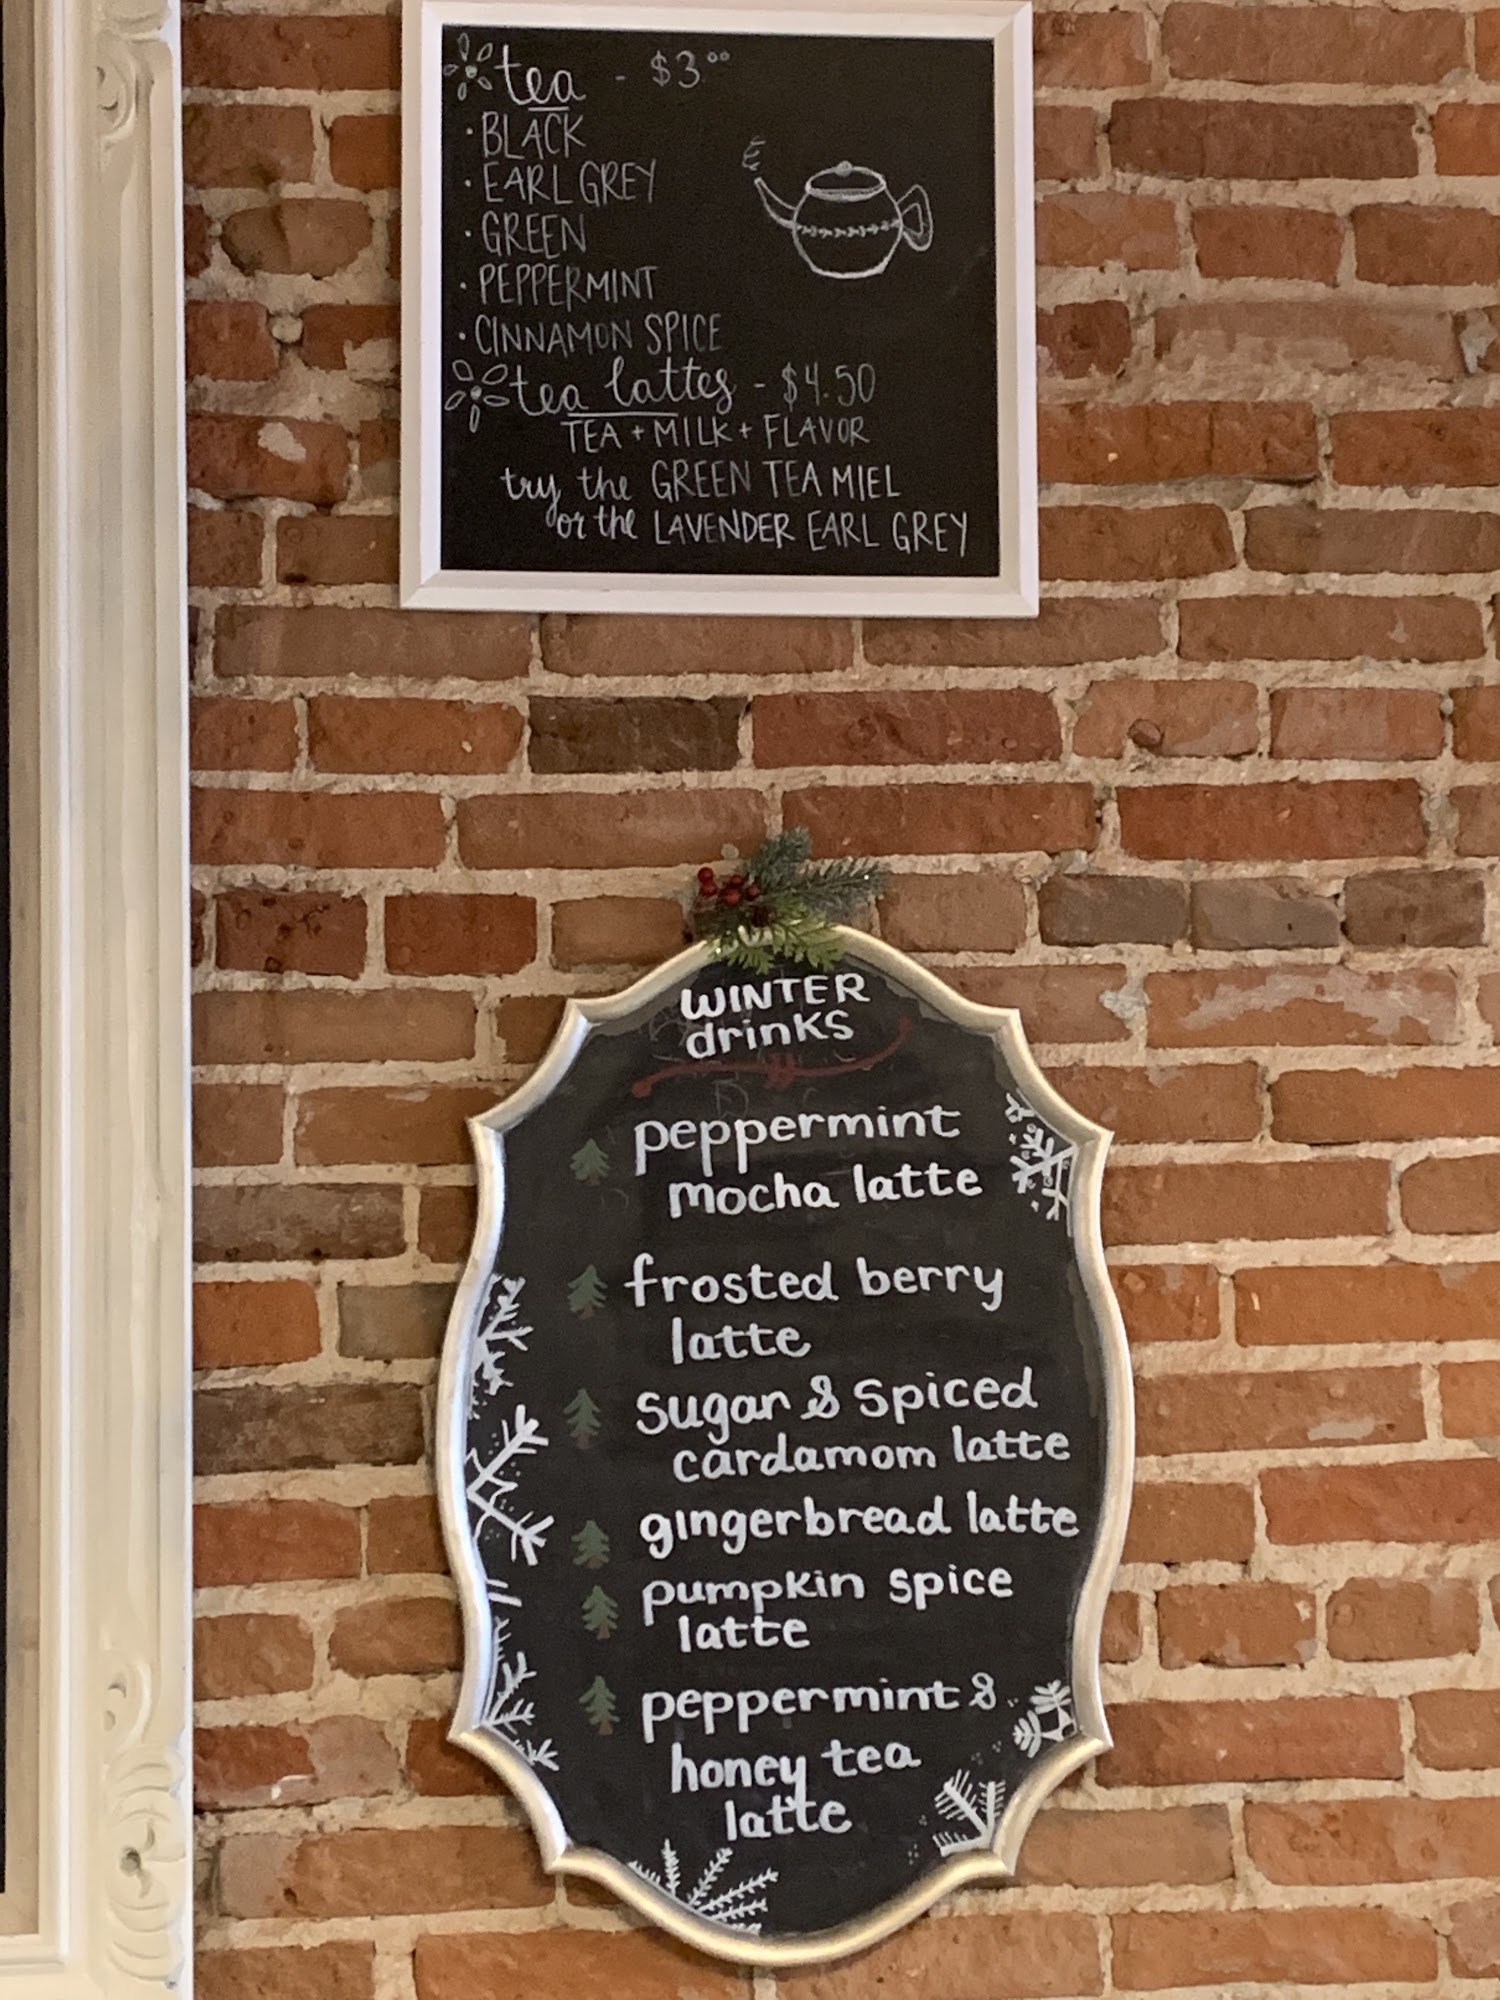 tea - $3.00
• BLACK
• EARL GREY
• GREEN
• PEPPERMINT
• CINNAMON SPICE
tea lattes - $4.50
TEA + MILK + FLAVOR
try the GREEN TEA MIEL
or the LAVENDER EARL GREY
WINTER
drinks
peppermint
mocha latte
frosted berry
latte
sugar & spiced
cardamom latte
gingerbread latte
pumpkin spice
latte
peppermint &
honey tea
latte